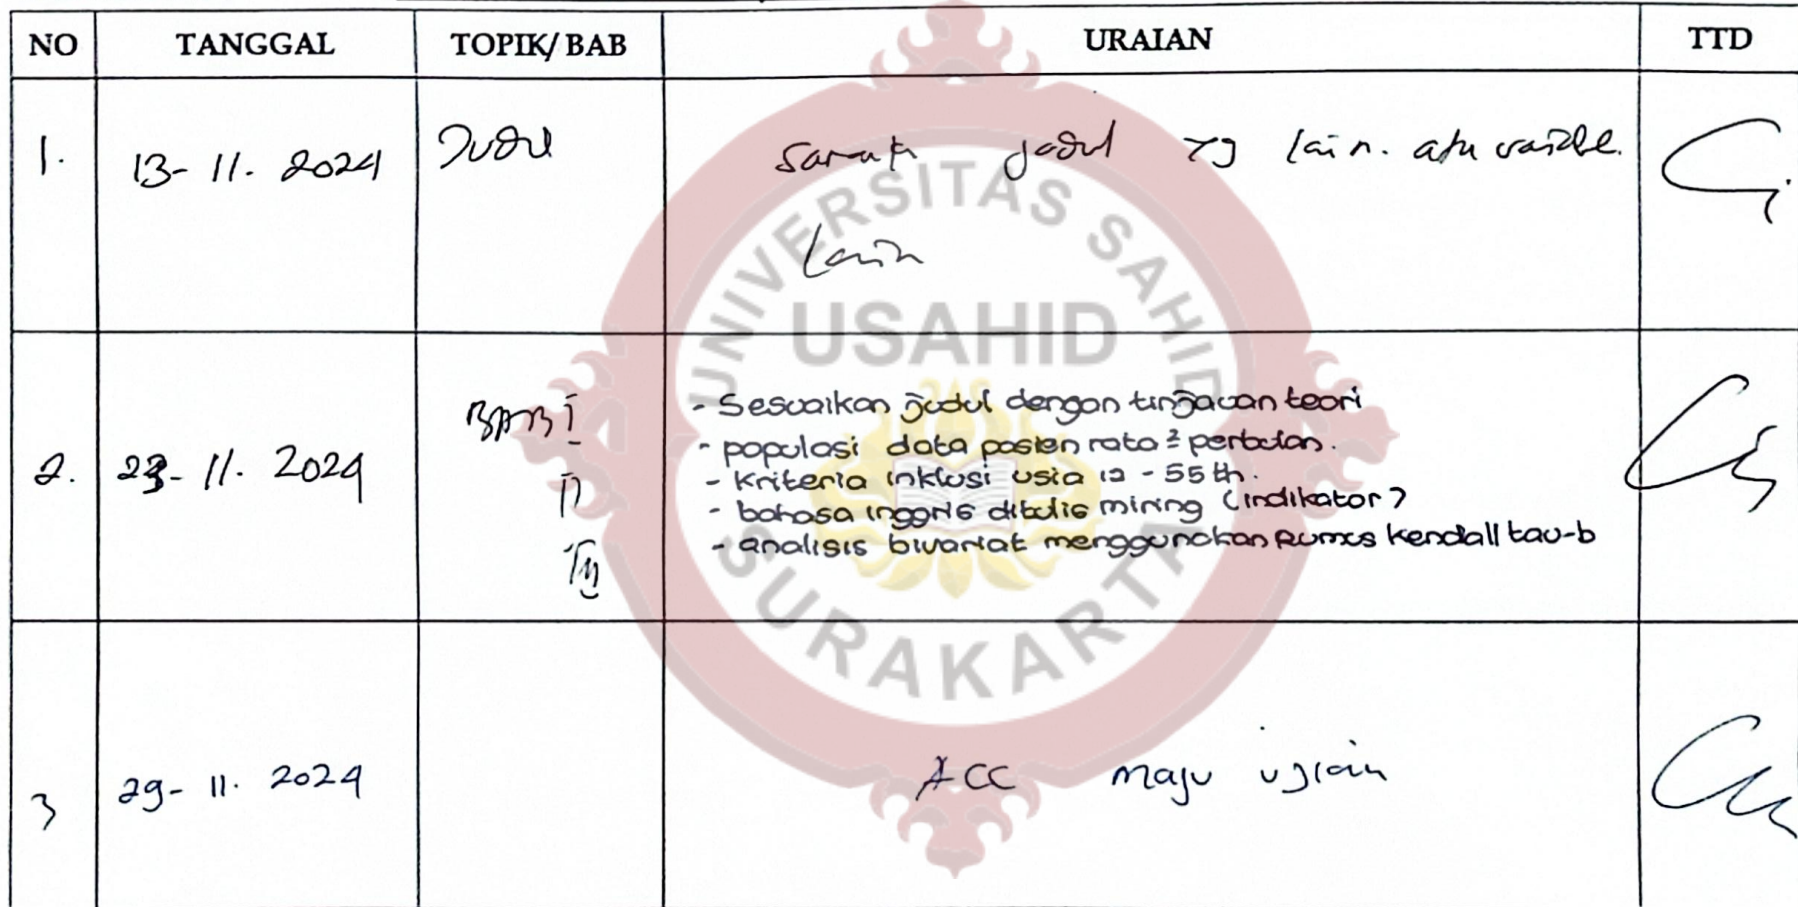 NO TANGGAL TOPIK/ BAB URAIAN TTD
1. 13- 11. 2024 Judul judul yg lain. atau
lain
2. 23- 11. 2024 BAB I
II
III
- Sesuaikan judul dengan tinjauan teori
- populasi data pasien rata² perbulan.
- Kriteria inklusi usia 12 - 55 th.
- bahasa inggris ditulis miring (indikator)
- analisis bivariat menggunakan Rumus Kendall tau-b
3 29- 11. 2024 ACC maju ujian
UNIVERSITAS SAHID
USAHID
SURAKARTA